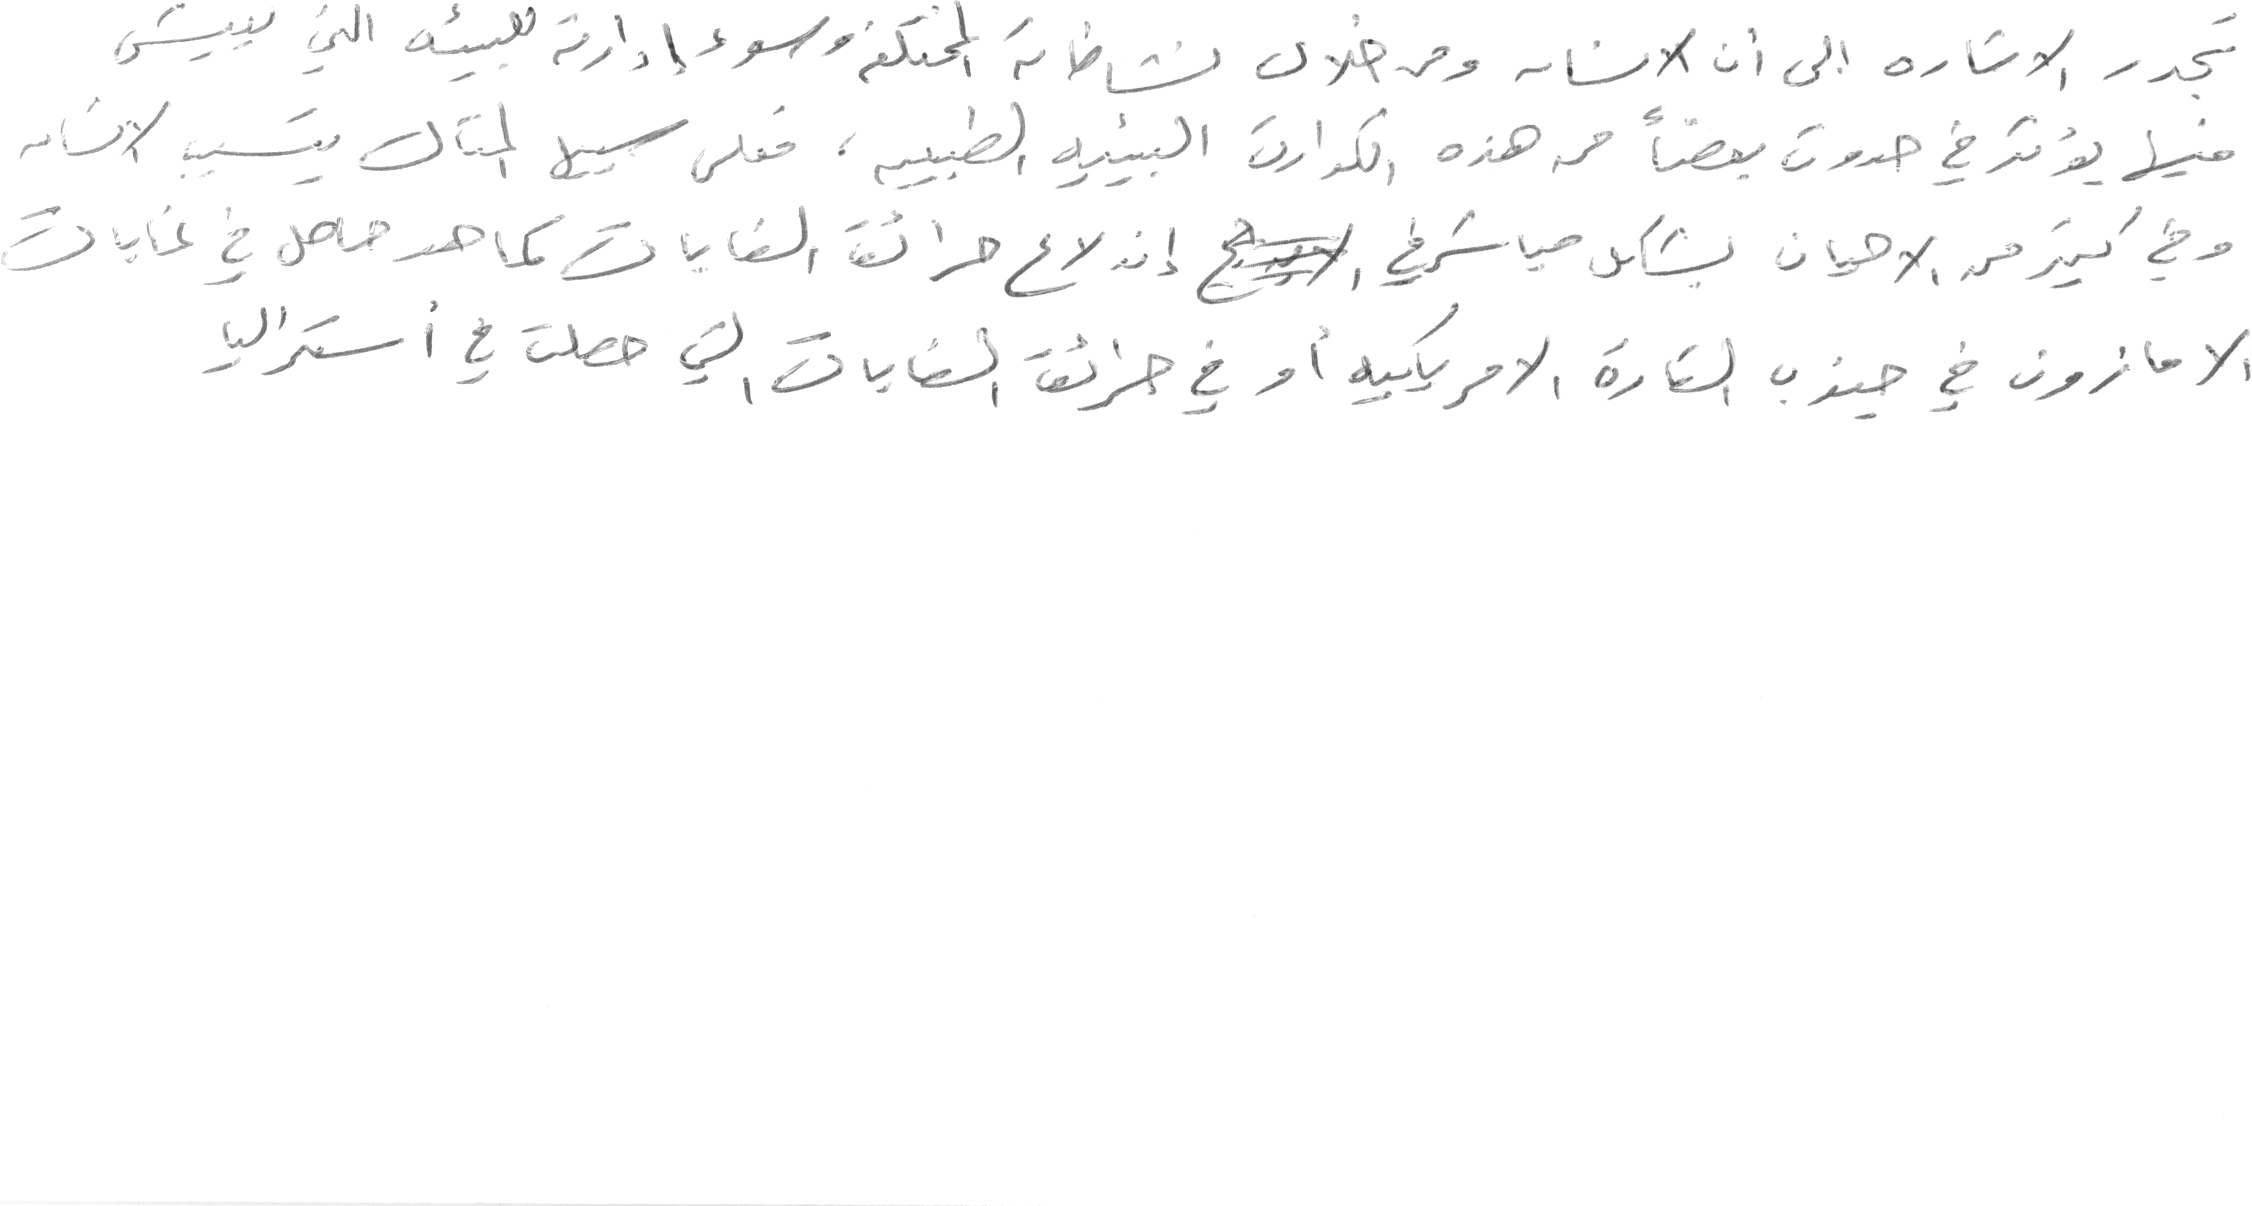 تجدر الاشاره الى أن الانسان ومن خلال نشاطاته المختلفة وسوء إدارته للبيئه التي يعيش
فيها يؤثر في حدوث بعضاً من هذه الكوارث البيئيه الطبيعيه، فعلى سبيل المثال يتسبب الانسان
وفي كثير من الاحيان بشكل مباشر في إندلاع حرائق الغابات كما هو حاصل في غابات
الامازون في جنوب القارة الامريكيه أو في حرائق الغابات التي حصلت في أستراليا